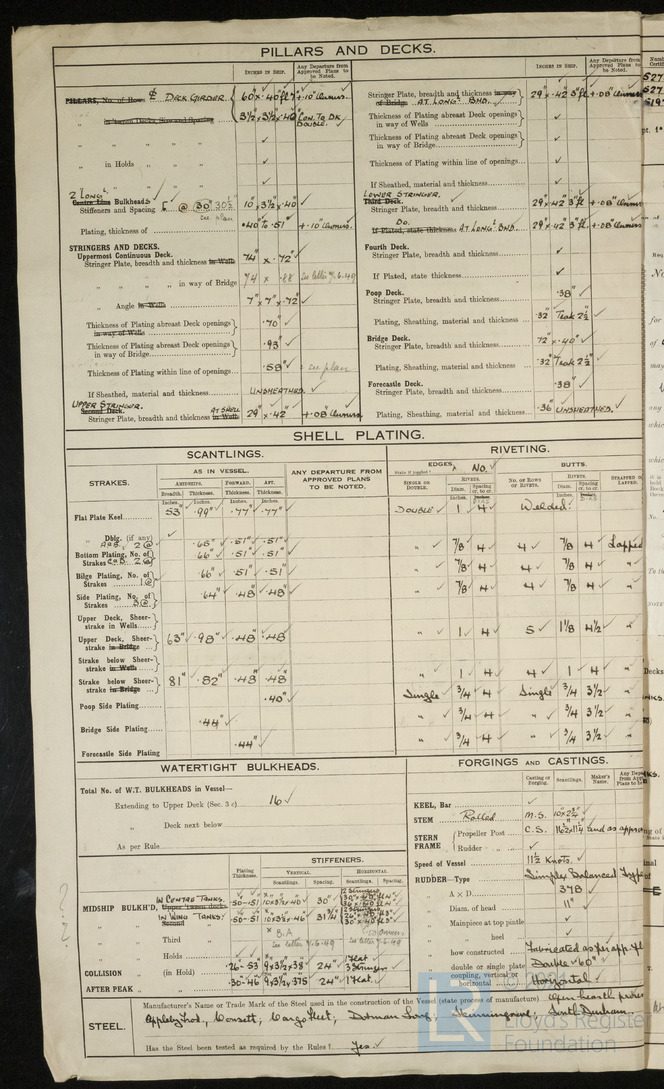 PILLARS AND DECKS.
INCHES IN SHIP.
Any Departure from Approved Plans to be Noted.
PILLARS, No. of Rows ₵ DECK GIRDER.
60" x .40" fl"
+.10" Owners.
3½ x 3½ x .40
CON. TO DK DOUBLE.
„ in Holds „ „
2 LONGL
Centre Line Bulkhead.
Stiffeners and Spacing [ @ 30" 30½"
see plan
10" x 3½" x .40"
Plating, thickness of
.40 to .51"
+.10" Owners.
STRINGERS AND DECKS.
Uppermost Continuous Deck.
Stringer Plate, breadth and thickness in Wells
74" x .72"
„ „ „ in way of Bridge
74 x .88
see letter 7.6.49
„ Angle in Wells
7" x 7" x .72"
Thickness of Plating abreast Deck openings in way of Wells
.70"
Thickness of Plating abreast Deck openings in way of Bridge
.93"
Thickness of Plating within line of openings
.58"
see plan
If Sheathed, material and thickness
UNSHEATHED.
UPPER STRINGER.
Second Deck.
Stringer Plate, breadth and thickness in Wells AT SHELL
29" x .42"
+.08" Owners
INCHES IN SHIP.
Any Departure from Approved Plans to be Noted.
Stringer Plate, breadth and thickness in way of Bridge AT LONGL BHD.
29" x .42 3" fl.
+.08" Owners
Thickness of Plating abreast Deck openings in way of Wells
Thickness of Plating abreast Deck openings in way of Bridge
Thickness of Plating within line of openings
If Sheathed, material and thickness
LOWER STRINGER.
Third Deck.
Stringer Plate, breadth and thickness
29" x .42 3" fl
+.08" Owners
Do.
If Plated, state thickness AT LONGL BHD.
29" x .42 3" fl.
+.08" Owners
Fourth Deck.
Stringer Plate, breadth and thickness
If Plated, state thickness
Poop Deck.
Stringer Plate, breadth and thickness
.38"
Plating, Sheathing, material and thickness
.32" Teak 2½"
Bridge Deck.
Stringer Plate, breadth and thickness
72" x .40"
Plating, Sheathing, material and thickness
.32 Teak 2½"
Forecastle Deck.
Stringer Plate, breadth and thickness
.38"
Plating, Sheathing, material and thickness
.36 UNSHEATHED.
SHELL PLATING.
SCANTLINGS.
RIVETING.
STRAKES.
AS IN VESSEL.
AMIDSHIPS. FORWARD. AFT.
Breadth. Thickness. Thickness. Thickness.
Inches. Inches. Inches. Inches.
ANY DEPARTURE FROM APPROVED PLANS TO BE NOTED.
EDGES, No.
State if joggled?
BUTTS.
SINGLE OR DOUBLE.
RIVETS.
Diam. Spacing cr. to cr.
NO. OF ROWS OF RIVETS.
RIVETS.
Diam. Spacing cr. to cr.
STRAPPED OR LAPPED.
Flat Plate Keel 53" .99" .77" .77" DOUBLE 1 4 Welded.
„ Dblg. (if any)
A & B. 2@ .65" .51" .51" „ 7/8 4 4 7/8 4 Lapped
Bottom Plating, No. of Strakes C & D. 2@ .66" .51" .51" „ 7/8 4 4 7/8 4 „
Bilge Plating, No. of Strakes 1@ .66" .51" .51" „ 7/8 4 4 7/8 4 „
Side Plating, No. of Strakes 3@ .64" .48" .48"
Upper Deck, Sheerstrake in Wells
Upper Deck, Sheerstrake in Bridge 63" .98" .48" .48" „ 1 4 5 1 1/8 4½ „
Strake below Sheerstrake in Wells
Strake below Sheerstrake in Bridge 81" .82" .48" .48" „ 1 4 4 1 4 „
Poop Side Plating .40" Single 3/4 4 Single 3/4 3½ „
Bridge Side Plating .44" „ 3/4 4 „ 3/4 3½ „
Forecastle Side Plating .44" „ 3/4 4 „ 3/4 3½ „
WATERTIGHT BULKHEADS.
Total No. of W.T. BULKHEADS in Vessel—
Extending to Upper Deck (Sec. 3 c) 16
„ Deck next below
As per Rule
Plating Thickness.
STIFFENERS.
VERTICAL. HORIZONTAL.
Scantlings. Spacing. Scantlings. Spacing.
MIDSHIP BULKH'D, IN CENTRE TANKS. .50-.51 30"
„ IN WING TANKS. .50-.51 31¼
Second
Third
B.A
see letter 7.6.49
see letter 7.6.49
„ Holds
COLLISION (in Hold) .26-.53 9 x 3½ x .38" 24"
AFTER PEAK „ .30-.46 9 x 3½ x .375 24" 1 Flat.
FORGINGS AND CASTINGS.
Casting or Forging. Scantlings. Maker's Name. Any Departure from Approved Plans to be
KEEL, Bar
STEM Rolled M.S. 10" x 2¾"
STERN FRAME
Propeller Post C.S. and as approved
Rudder „
Speed of Vessel 11½ Knots.
RUDDER—Type Simplex Balanced Type
A × D 378
Diam. of head 11"
Mainpiece at top pintle
„ heel
how constructed Fabricated as per app.
double or single plate Double .60"
coupling, vertical or horizontal Horizontal
STEEL.
Manufacturer's Name or Trade Mark of the Steel used in the construction of the Vessel (state process of manufacture) Open hearth process
Appleby Frod., Consett, Cargo Fleet, Dorman Long, Skinningrove, South Durham.
Has the Steel been tested as required by the Rules? Yes.
Lloyd's Register
Foundation